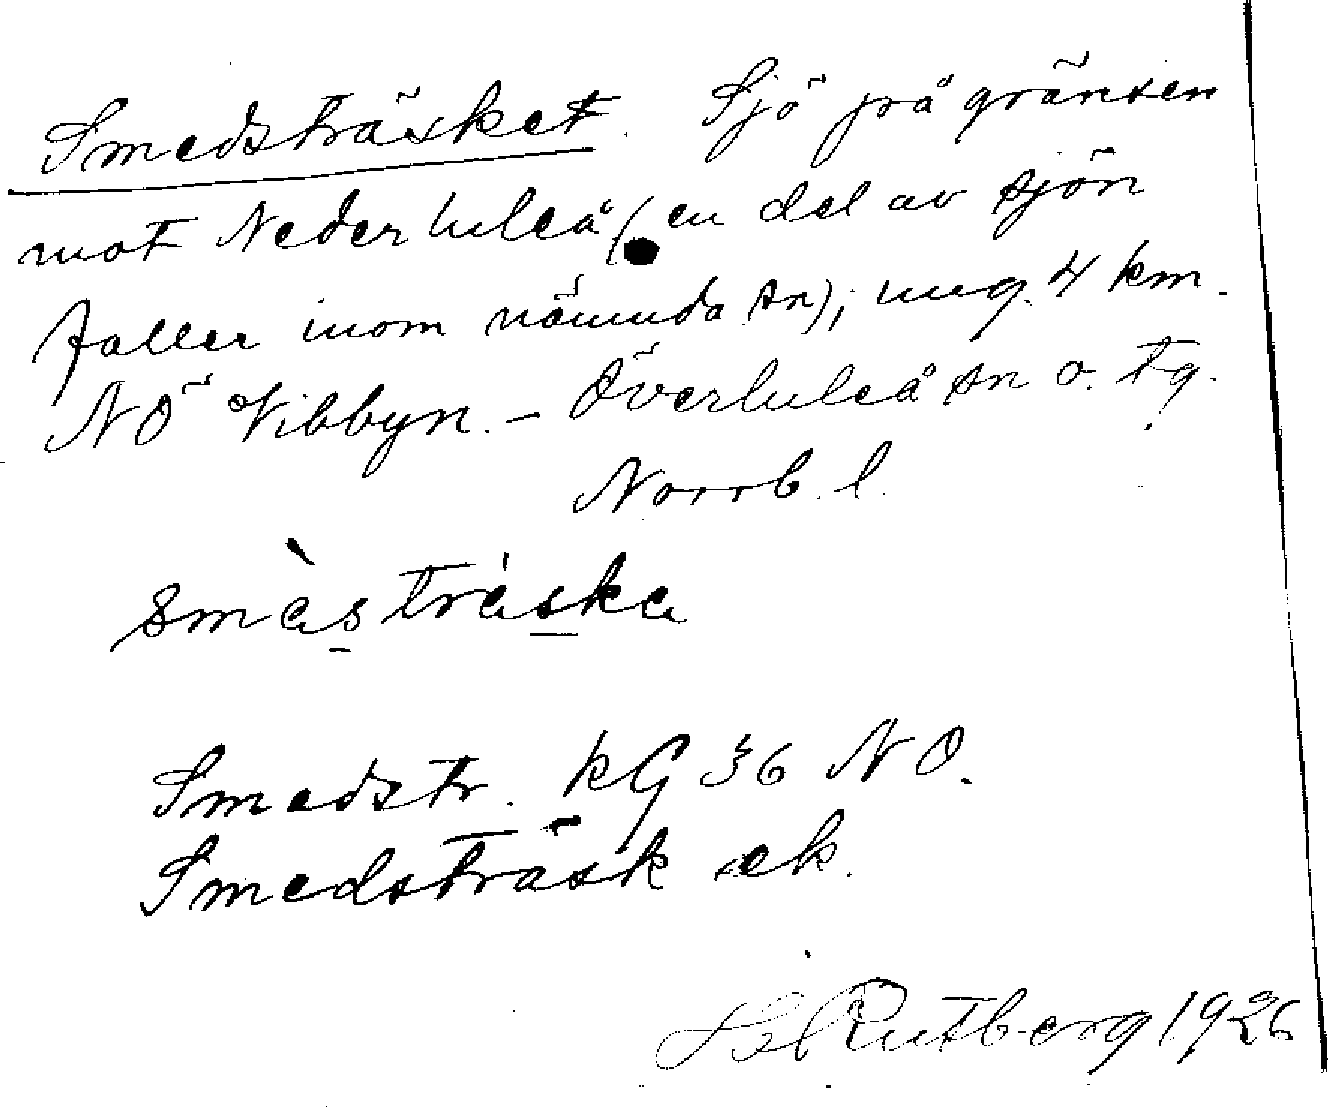 Smedsträsket. Sjö på gränsen
mot Nederluleå (en del av sjön
faller inom nämnda sn); ung. 4 km.
NÖ Vibbyn. – Överluleå sn o. tg.
Norrb. l.
smàstráska
Smedstr. kG 36 NO.
Smedsträsk ek.
Rutberg 1926